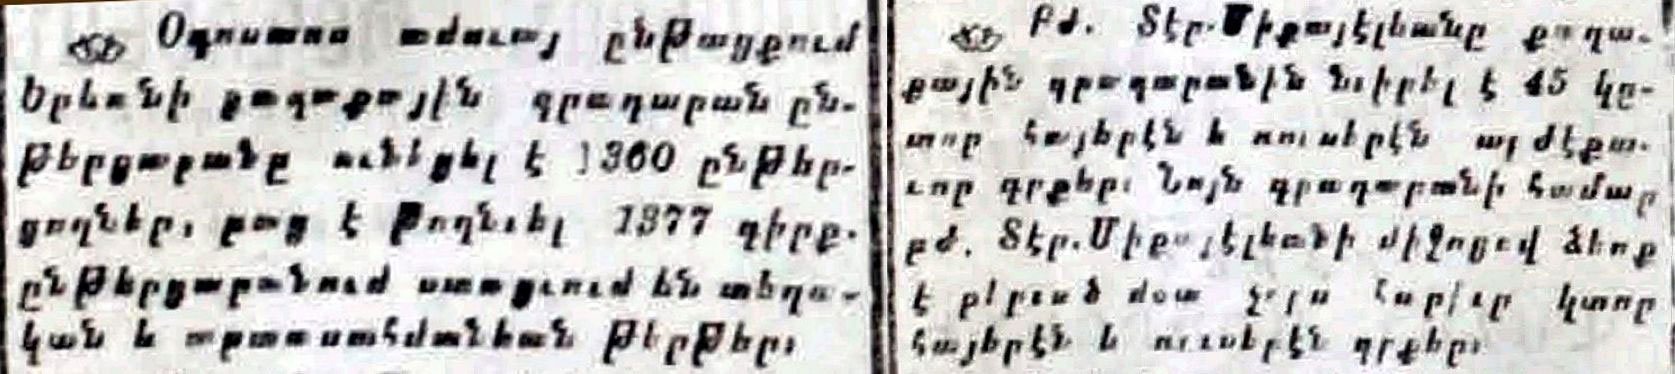 Օգոստոս ամսուայ ընթացքում
Երևանի քաղաքային գրադարան ըն-
թերցարանը ունեցել է 1360 ընթեր-
ցողներ, բաց է թողնւել 1377 գիրք.
ընթերցարանում ստացւում են տեղա-
կան և արտասահմանեան թերթեր։
Բժ. Տէր.Միքայէլեանը քաղա-
քային գրադարանին նւիրել է 45 կը-
տոր հայերէն և ռուսերէն այժէքա-
ւոր գրքեր։ Նոյն գրադարանի համար
բժ. Տէր.Միքայէլեանի միջոցով ձեռք
է բերւած մօտ չորս հարիւր կտոր
հայերէն և ռուսերէն գրքեր։